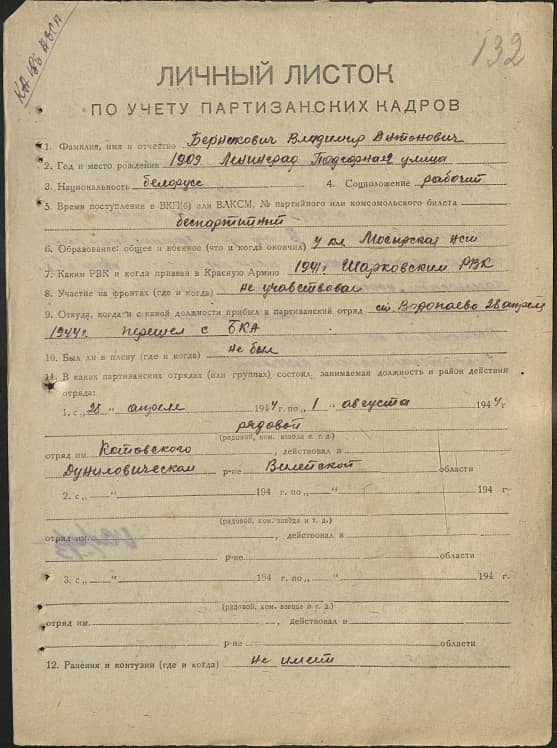 132
ЛИЧНЫЙ ЛИСТОК
ПО УЧЕТУ ПАРТИЗАНСКИХ КАДРОВ
1. Фамилия, имя и отчество Владимир Антонович
2. Год и место рождения 1909 Ленинград Подгорная улица
3. Национальность белорусс 4. Соцположение рабочий
5. Время поступления в ВКП(б) или ВЛКСМ, № партийного или комсомольского билета
беспартийный
6. Образование: общее и военное (что и когда окончил) 4 кл
7. Каким РВК и когда призван в Красную Армию 1941г Шарковским РВК
8. Участие на фронтах (где и когда) не учавствовал
9. Откуда, когда и с какой должности прибыл в партизанский отряд ст. Воропаево 28 апреля
1944г. перешел с БКА
10. Был ли в плену (где и когда) не был
11. В каких партизанских отрядах (или группах) состоял, занимаемая должность и район действия
отряда:
1. с „28“ апреля 1944 г. по „1“ августа 1944 г.
рядовой
(рядовой, ком. взвода и т. д.)
отряд им. Котовского, действовал в
Дуниловическом р-не Вилейской области
2. с „ “ 194 г. по „ “ 194 г.
(рядовой, ком. взвода и т. д.)
отряд им. , действовал в
р-не области
3. с „ “ 194 г. по „ “ 194 г.
(рядовой, ком. взвода и т. д.)
отряд им. , действовал в
р-не области
12. Ранения и контузии (где и когда) не имеет